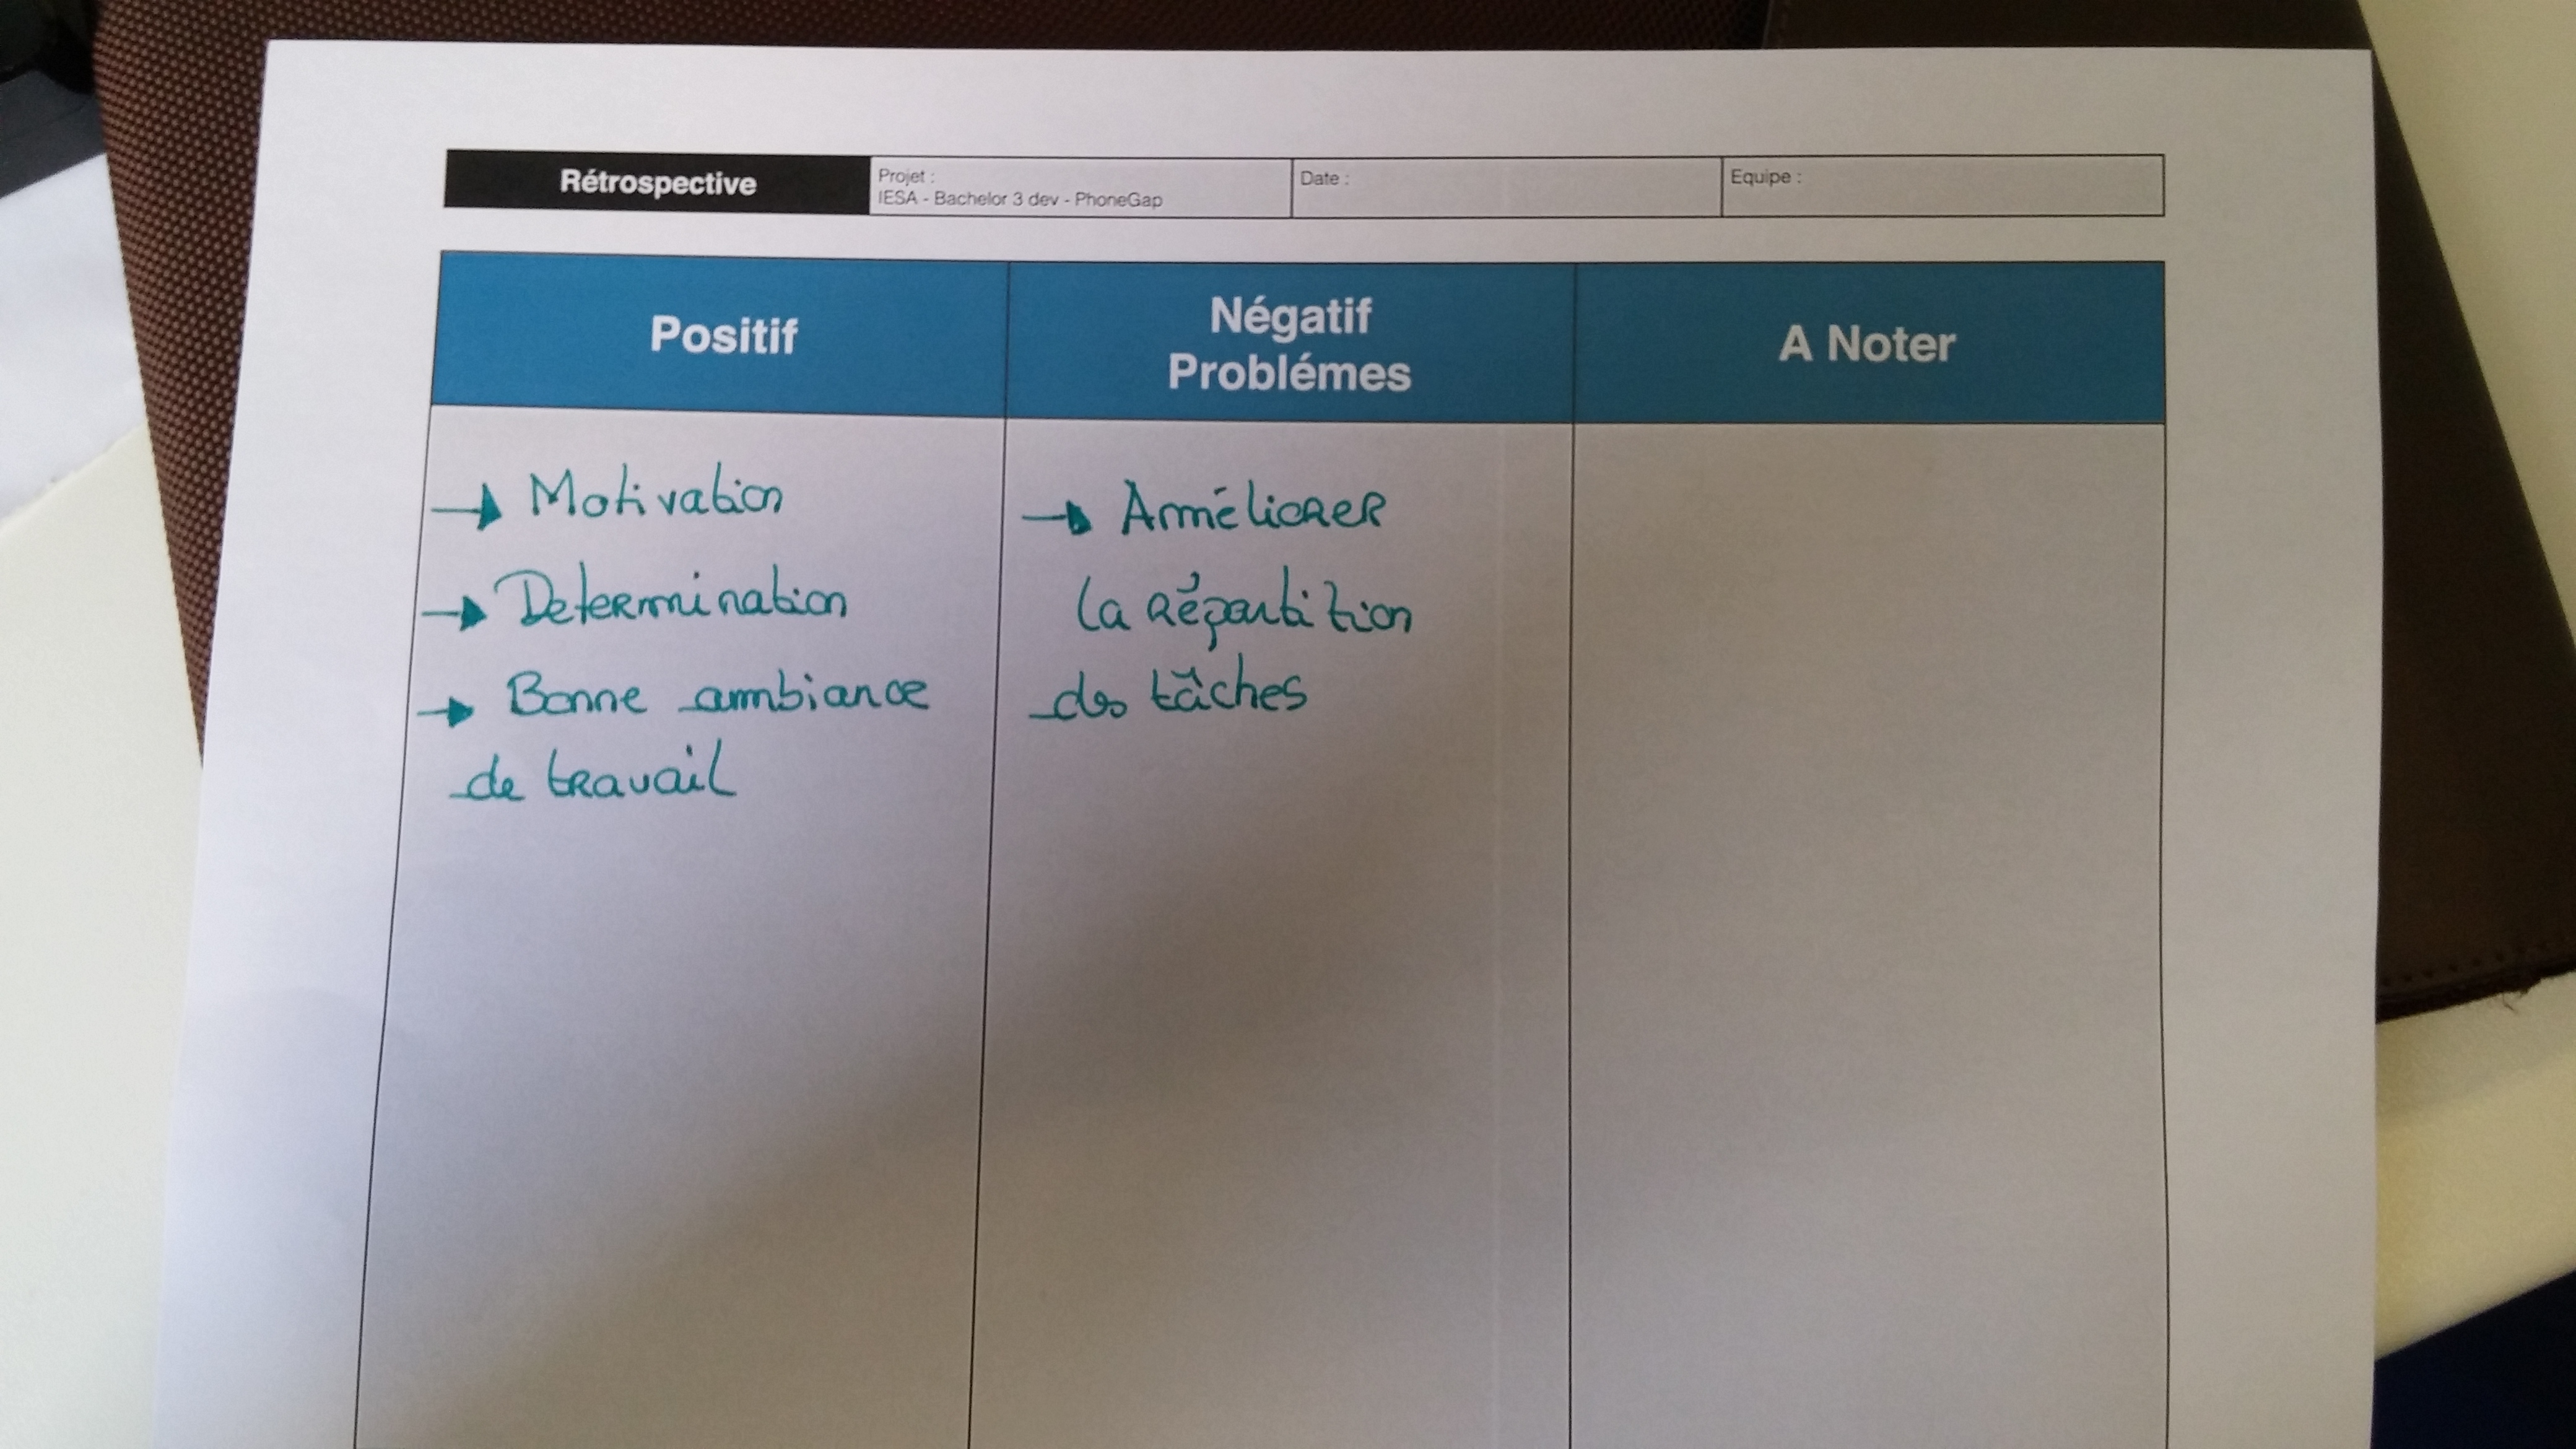 Rétrospective
Projet :
IESA - Bachelor 3 dev - PhoneGap
Date :
Equipe :
Positif
Négatif
Problémes
A Noter
→ Motivation
→ Determination
→ Bonne ambiance
de travail
→ Améliorer
la répartition
des tâches